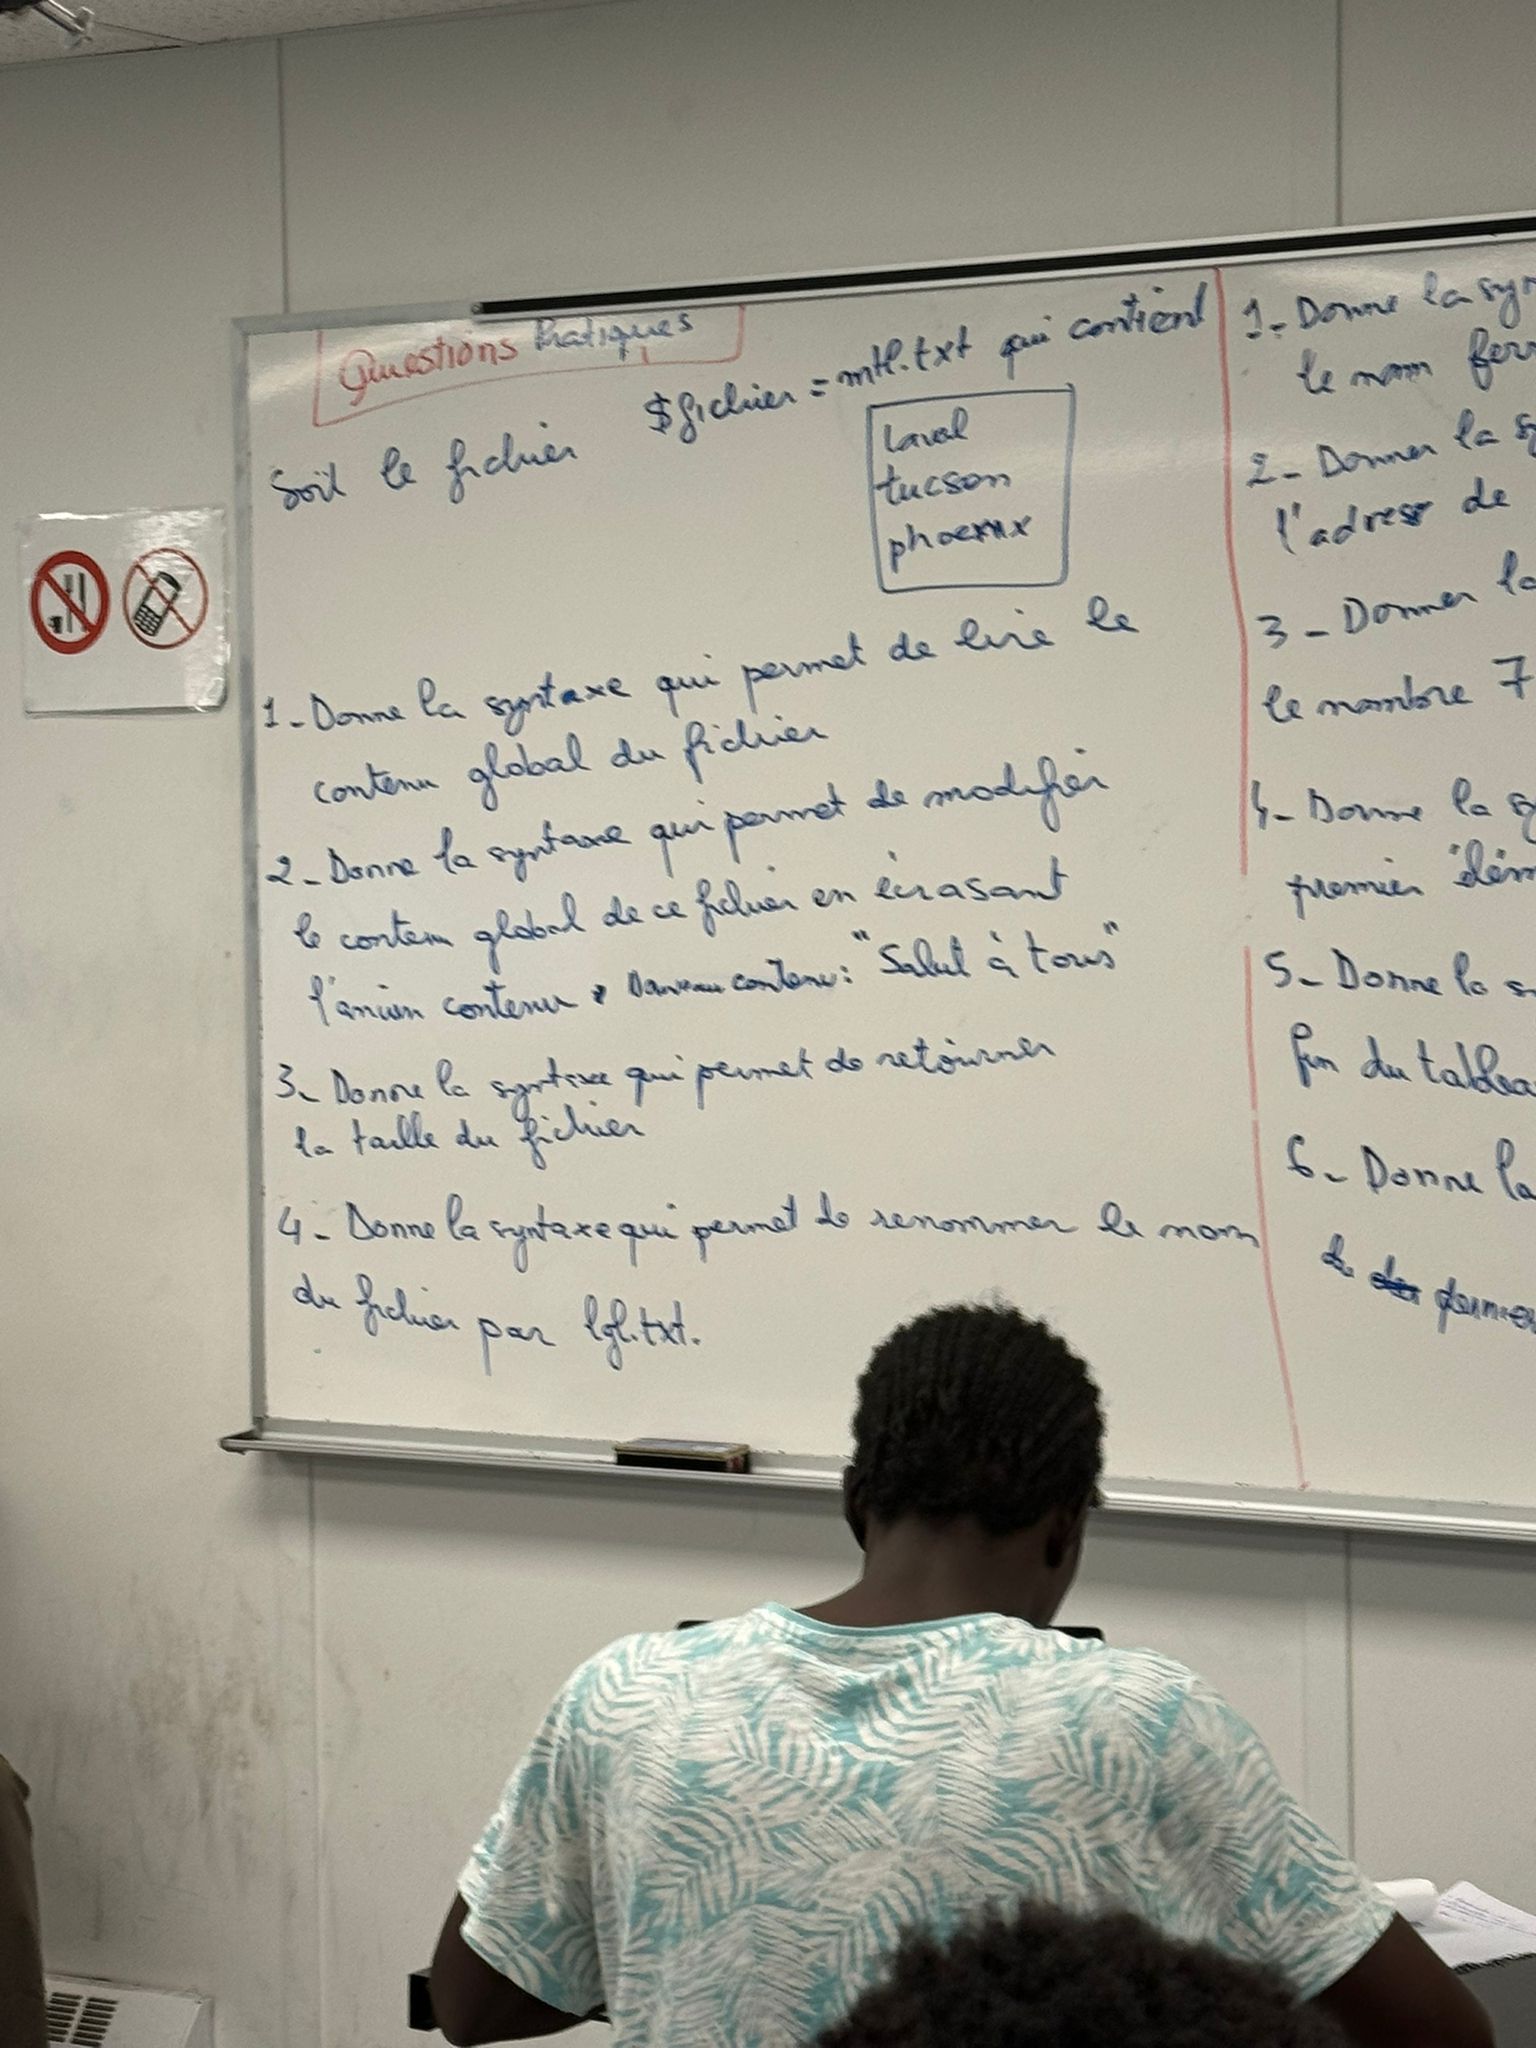 Questions Pratiques
Soit le fichier $fichier = mtl.txt qui contient
laval
tucson
phoenix
1- Donne la syntaxe qui permet de lire le
contenu global du fichier
2- Donne la syntaxe qui permet de modifier
le contenu global de ce fichier en écrasant
l'ancien contenu. Nouveau contenu: "Salut à tous"
3- Donne la syntaxe qui permet de retourner
la taille du fichier
4- Donne la syntaxe qui permet de renommer le nom
du fichier par lgl.txt.
1- Donne la syn
le nom ferr
2- Donner la sy
l'adress de
3- Donner la
le nombre 7
4- Donne la sy
premier élém
5- Donne la s
fin du tablea
6- Donne la
de dernier